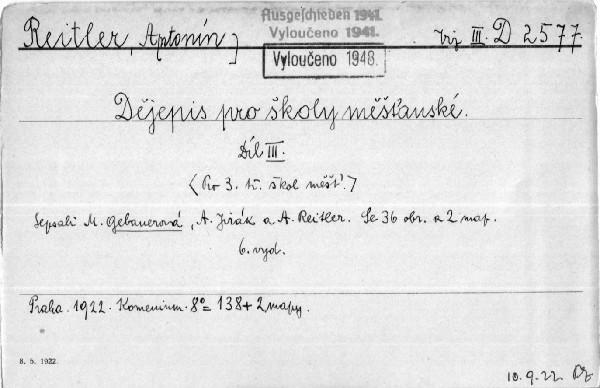 Reitler, Antonín]
Ausgeschieden 1941.
Vyloučeno 1941.
Vyloučeno 1948.
III. D 2577.
Dějepis pro školy měšťanské.
Díl III.
(Pro 3. tř. škol měšť.)
Sepsali M. Gebauerová, A. Jirák a A. Reitler. Se 36 obr. a 2 map.
6. vyd.
Praha. 1922. Komenium. 8° = 138 + 2 mapy.
8. 5. 1922.
10.9.22.